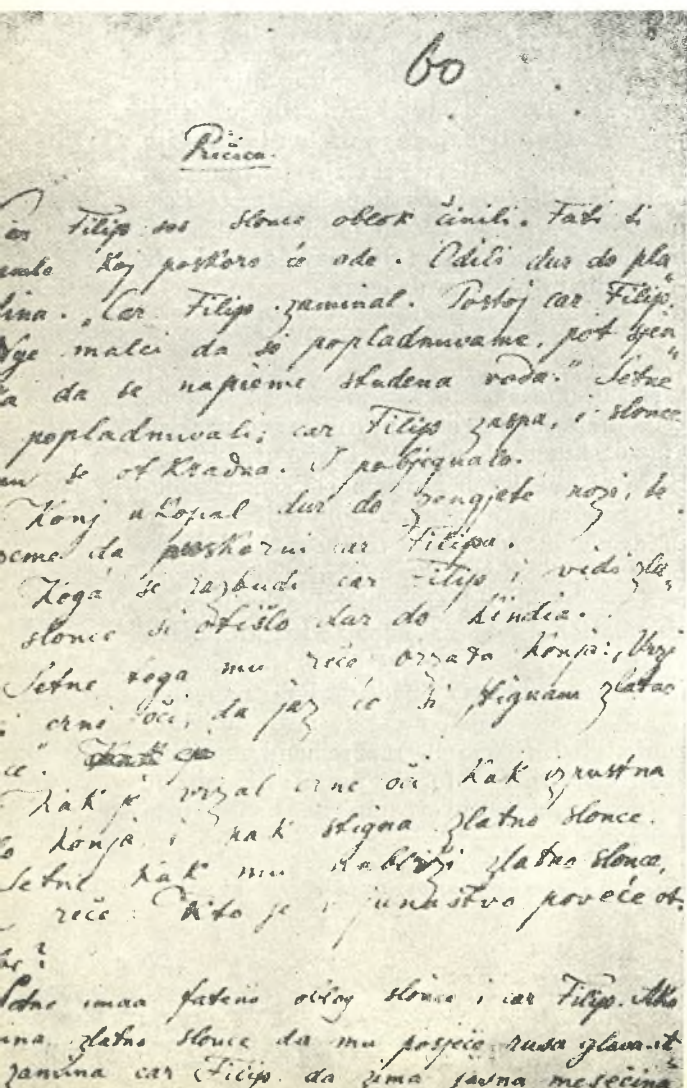 60
Pričica.
Car Filip sos slonce oblok činili. Fati ti
koj poskoro će ode. Odili dur do pla
nina. „Car Filip zaminal. Postoj car Filip.
malci da si popladnuvame, pot sjen
ka da se napieme studena voda.“ Setne
popladnuvali; car Filip zaspa, i slonce
mu se otkradna. I pobjegnalo.
Konj ukopal dur do zengjete nozi, te
da car Filipa.
Koga se razbudi car Filip i vidi zla„
slonce si otišlo dur do kindia.
Setne toga mu reče konja: „Vrzi
crne oči, da jaz će si stignam zlatno
ce“.
Kak je vrzal crne oči kak izrustna
konja i kak stigna zlatno slonce.
Setne kak mu nabliži zlatno slonce,
reče: Kto je v junaštvo poveće ot
be?
Setne imaa fateno oblog slonce i car Filip. Ako
zlatno slonce da mu posječe rusa glava. A
car Filip da zima jasna mesečina